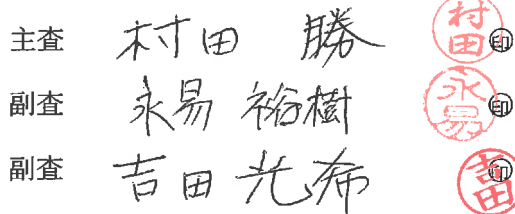 主査 村田 勝 村田 ㊞
副査 永易 裕樹 永易 ㊞
副査 吉田 光希 吉田 ㊞